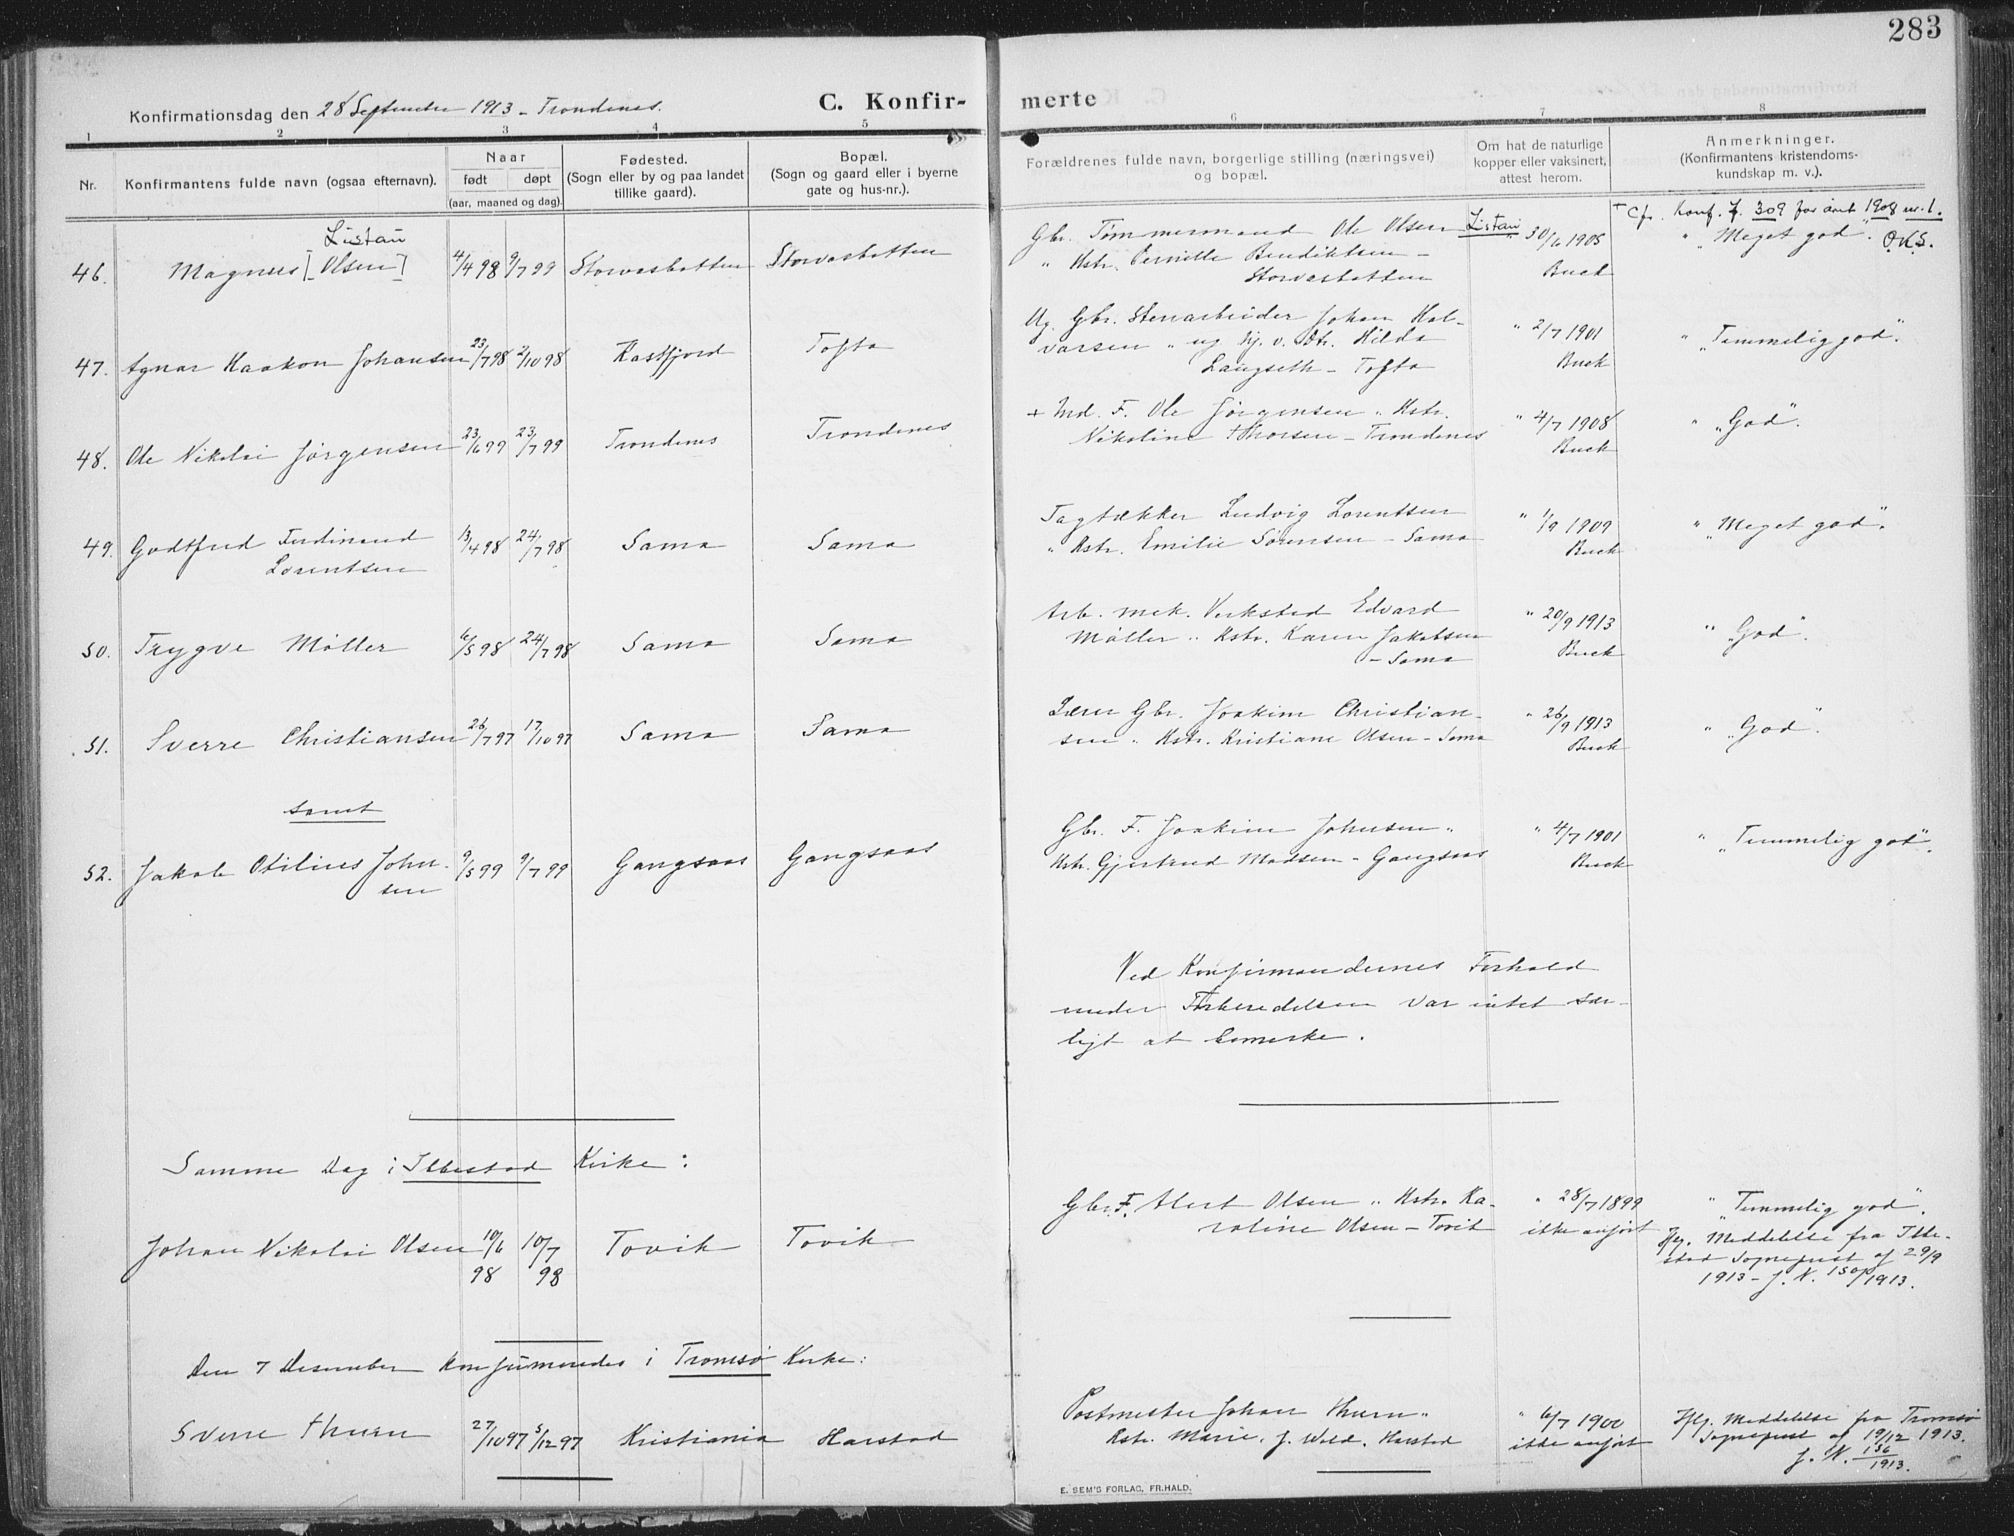 283
Konfirmationsdag den 28 September 1913 - Trondenes.
C. Konfir- merte
1 2 3 4 5 6 7 8
Nr.
Konfirmantens fulde navn (ogsaa efternavn).
Naar
født døpt
(aar, maaned og dag).
Fødested.
(Sogn eller by og paa landet
tillike gaard).
Bopæl.
(Sogn og gaard eller i byerne
gate og hus-nr.).
Forældrenes fulde navn, borgerlige stilling (næringsvei)
og bopæl.
Om hat de naturlige
kopper eller vaksinert,
attest herom.
Anmerkninger.
(Konfirmantens kristendoms-
kundskap m. v.).
Listau
46. Magnus [Olsen] 4/4 98 9/7 99 Storvasbotten Storvasbotten
Gbr. Tømmermand Ole Olsen Listau " 30/6 1905
" Hstr. Pernille Bendiktsen - Buck
Storvasbotten
Cfr. Konf. f. 309 for året 1908 nr. 1.
" "Meget god". O.K.S.
47. Agnar Haakon Johansen 23/7 98 2/10 98 Kastfjord Tofta
Ug. Gbr. Stenarbeider Johan Hal- " 2/7 1901 " "Temmelig god".
varsen " ug hj. v. Dtr. Hilda Buck
Langseth - Tofta
48. Ole Nikolai Jørgensen 23/6 99 23/7 99 Trondenes Trondenes
+ Ind. F. Ole Jørgensen " Hstr. " 4/7 1908 " "God".
Nikoline Thorsen - Trondenes Buck
49. Godtfred Ferdinand 13/4 98 24/7 98 Sama Sama
Lorentsen
Tagtækker Ludvig Lorentsen " 1/9 1909 " "Meget god".
" Hstr. Emilie Sørensen - Sama Buck
50. Trygve Møller 6/5 98 24/7 98 Sama Sama
Arb. mek. Verksted Edvard " 20/9 1913 " "God".
Møller " Hstr. Karen Jakobsen Buck
- Sama
51. Sverre Christiansen 26/7 97 17/10 97 Sama Sama
Gbr. Joakim Christian- " 26/9 1913 " "God".
sen " Hstr. Kristiane Olsen - Sama Buck
samt
52. Jakob Otilius John- 9/5 99 9/7 99 Gangsaas Gangsaas
sen
Gbr. F. Joakim Johnsen " " 4/7 1901 " "Temmelig god".
Hstr. Gjertrud Madsen - Gangsaas Buck
Ved Konfirmandernes Forhold
under Forberedelsen var intet sær-
ligt at bemerke.
Samme Dag i Ibbestad Kirke:
Johan Nikolai Olsen 10/6 98 10/7 98 Tovik Tovik
Gbr. F. Albert Olsen " Hstr. Ka- " 28/7 1899 " "Temmelig god".
roline Olsen - Tovik ikke anført Iflg. Meddelelse fra Ibbe-
stad Sogneprest af 29/9
1913 - J. N. 150/1913.
Den 7 Desember konfirmeredes i Tromsø Kirke:
Sverre Thurn 27/10 97 5/12 97 Kristiania Harstad
Postmester Johan Thurn " " 6/7 1900 Iflg. Meddelelse fra Tromsø
Hstr. Marie, f. Wold. Harstad ikke anført Sogneprest af 19/12 1913.
J. N. 156/1913.
E. SEM'S FORLAG, FR.HALD.